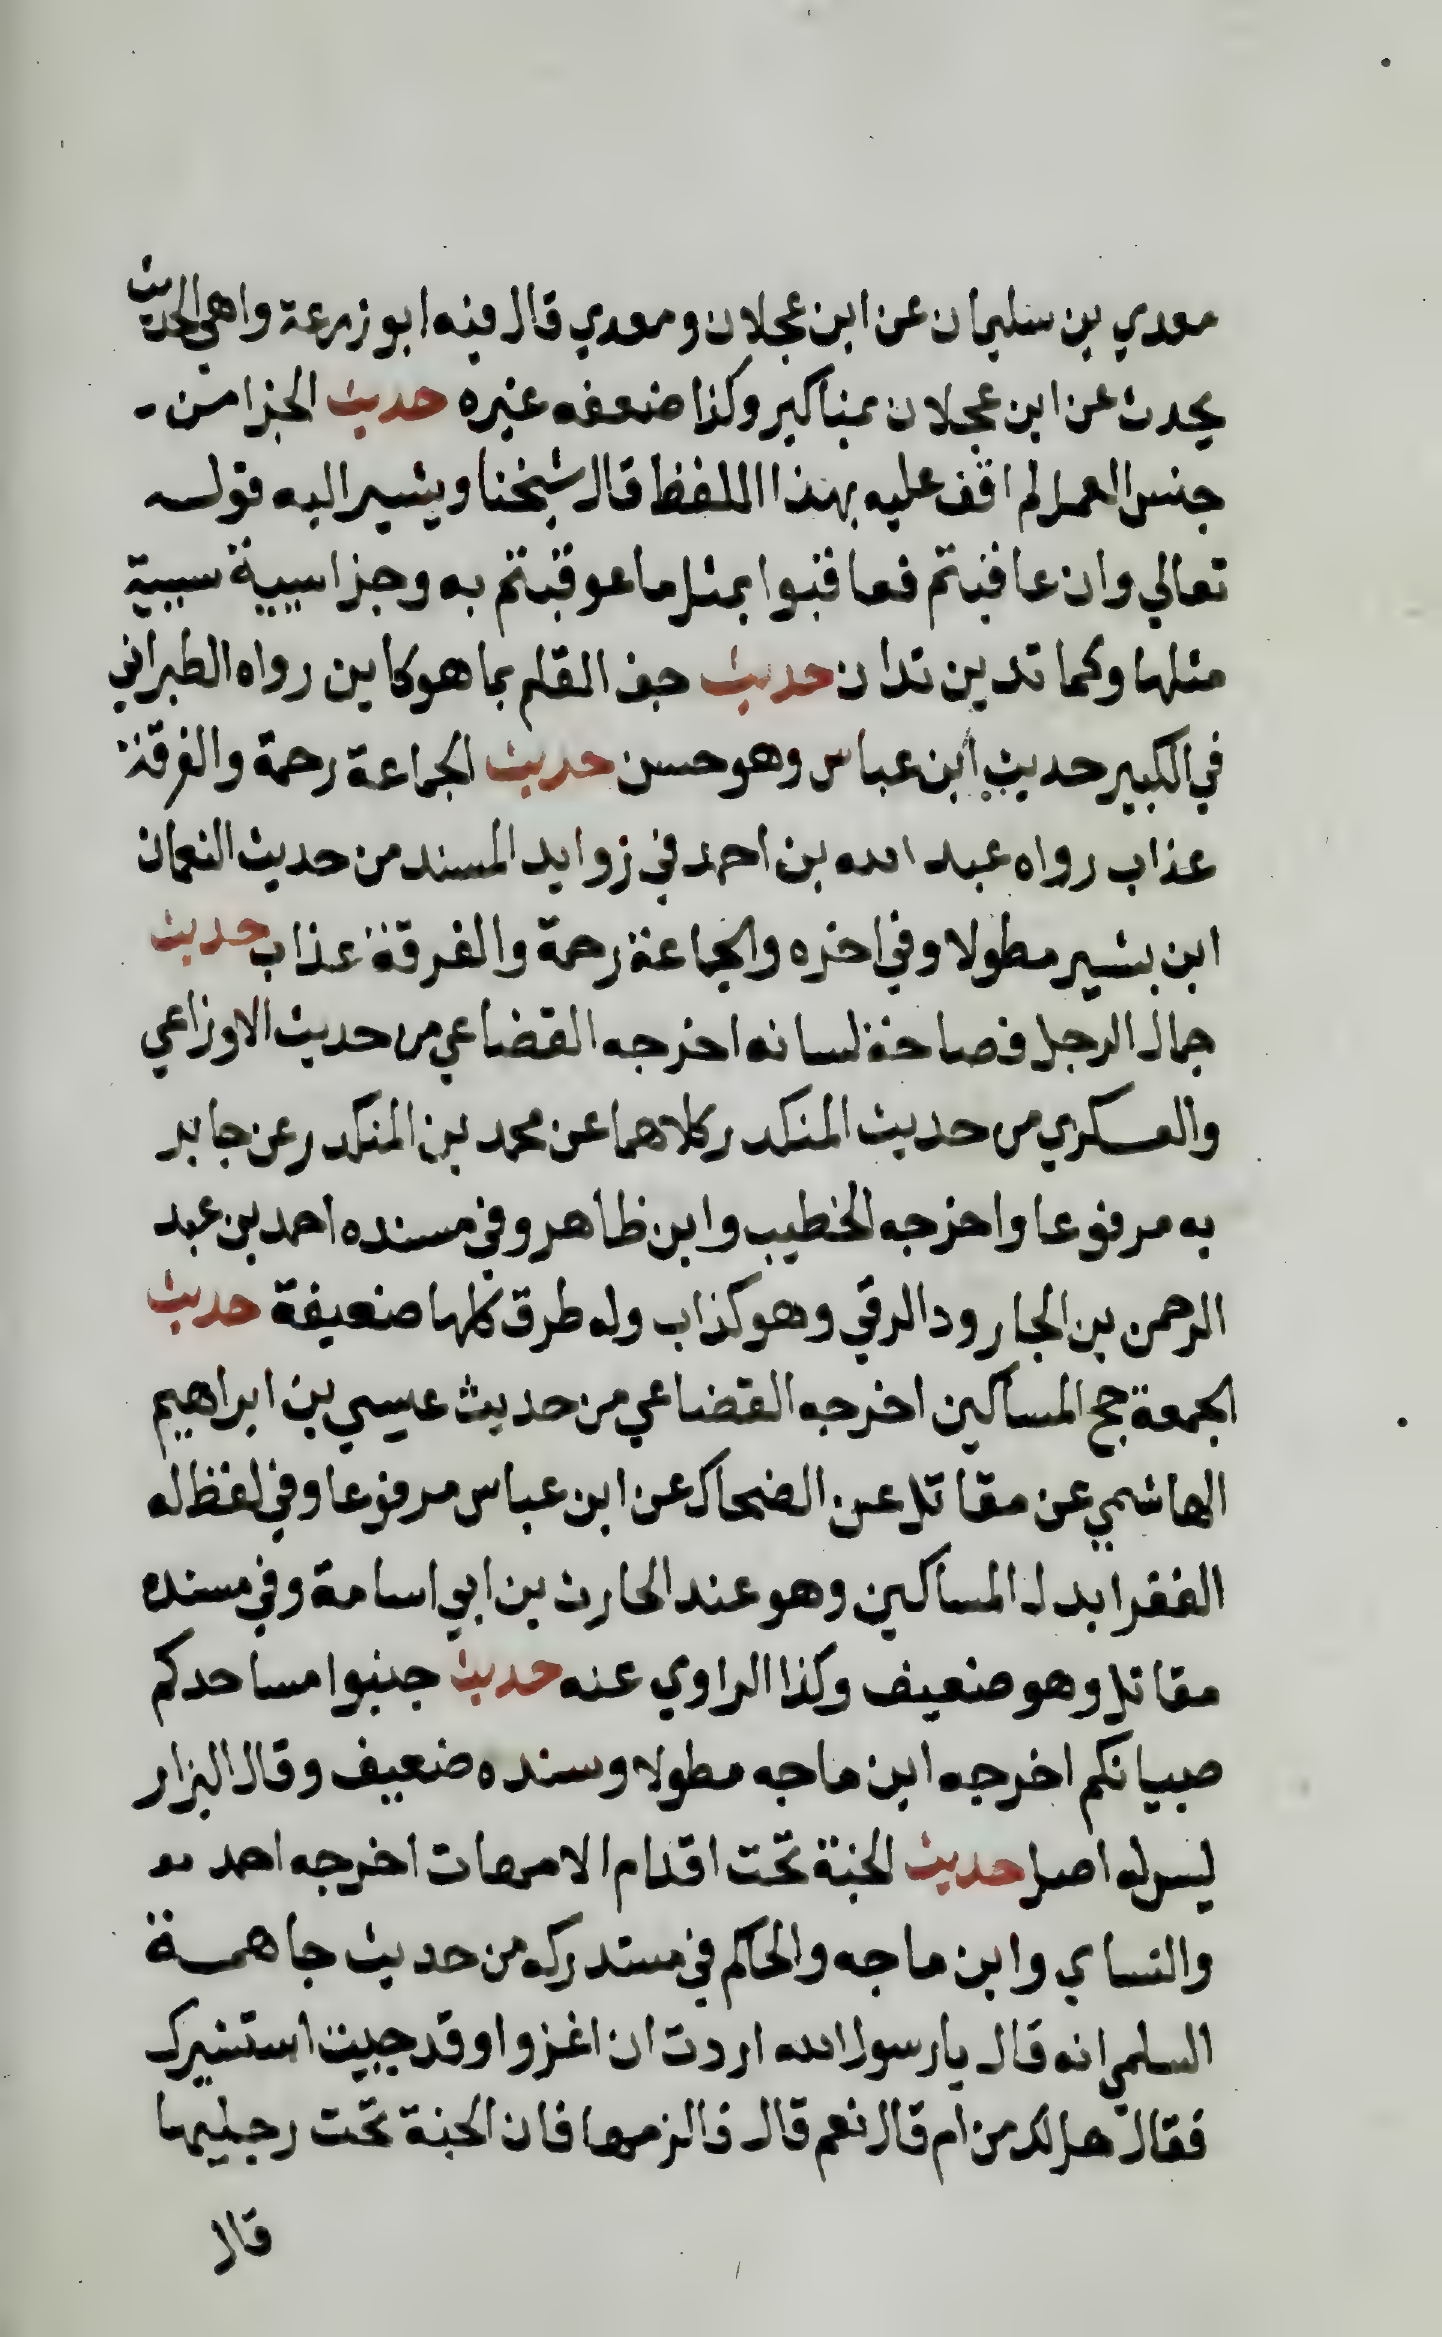 معدي بن سليمان عن ابن عجلان ومعدي قال فيه ابو زرعة واهي الحديث
يحدث عن ابن عجلان بمناكير وكذا ضعفه غيره حديث الجزا من
جنس العمل لم اقف عليه بهذا اللفظ قال شيخنا ويشير اليه قوله
تعالي وان عاقبتم فعاقبوا بمثل ما عوقبتم به وجزا سيية سيية
مثلها وكما تدين تدان حديث جف القلم بما هو كاين رواه الطبراني
في الكبير حديث ابن عباس وهو حسن حديث الجماعة رحمة والفرقة
عذاب رواه عبد الله بن احمد في زوايد المسند من حديث النعمان
ابن بشير مطولا وفي اخره والجماعة رحمة والفرقة عذاب حديث
جمال الرجل فصاحة لسانه اخرجه القضاعي من حديث الاوزاعي
والعسكري من حديث المنكدر كلاهما عن محمد بن المنكدر عن جابر
به مرفوعا واخرجه الخطيب وابن طاهر وفي مسنده احمد بن عبد
الرحمن بن الجارود الرقي وهو كذاب وله طرق كلها ضعيفة حديث
الجمعة حج المساكين اخرجه القضاعي من حديث عيسي بن ابراهيم
الهاشمي عن مقاتل عن الضحاك عن ابن عباس مرفوعا وفي لفظ له
الفقرا بدل المساكين وهو عند الحارث بن ابي اسامة وفي مسنده
مقاتل وهو ضعيف وكذا الراوي عنه حديث جنبوا مساجدكم
صبيانكم اخرجه ابن ماجه مطولا وسنده ضعيف وقال البزار
ليس له اصل حديث الجنة تحت اقدام الامهات اخرجه احمد
والنساي وابن ماجه والحاكم في مستدركه من حديث جاهمة
السلمي انه قال يا رسول الله اردت ان اغزوا وقد جيت استشيرك
فقال هل لك من ام قال نعم قال فالزمها فان الجنة تحت رجليها
قال